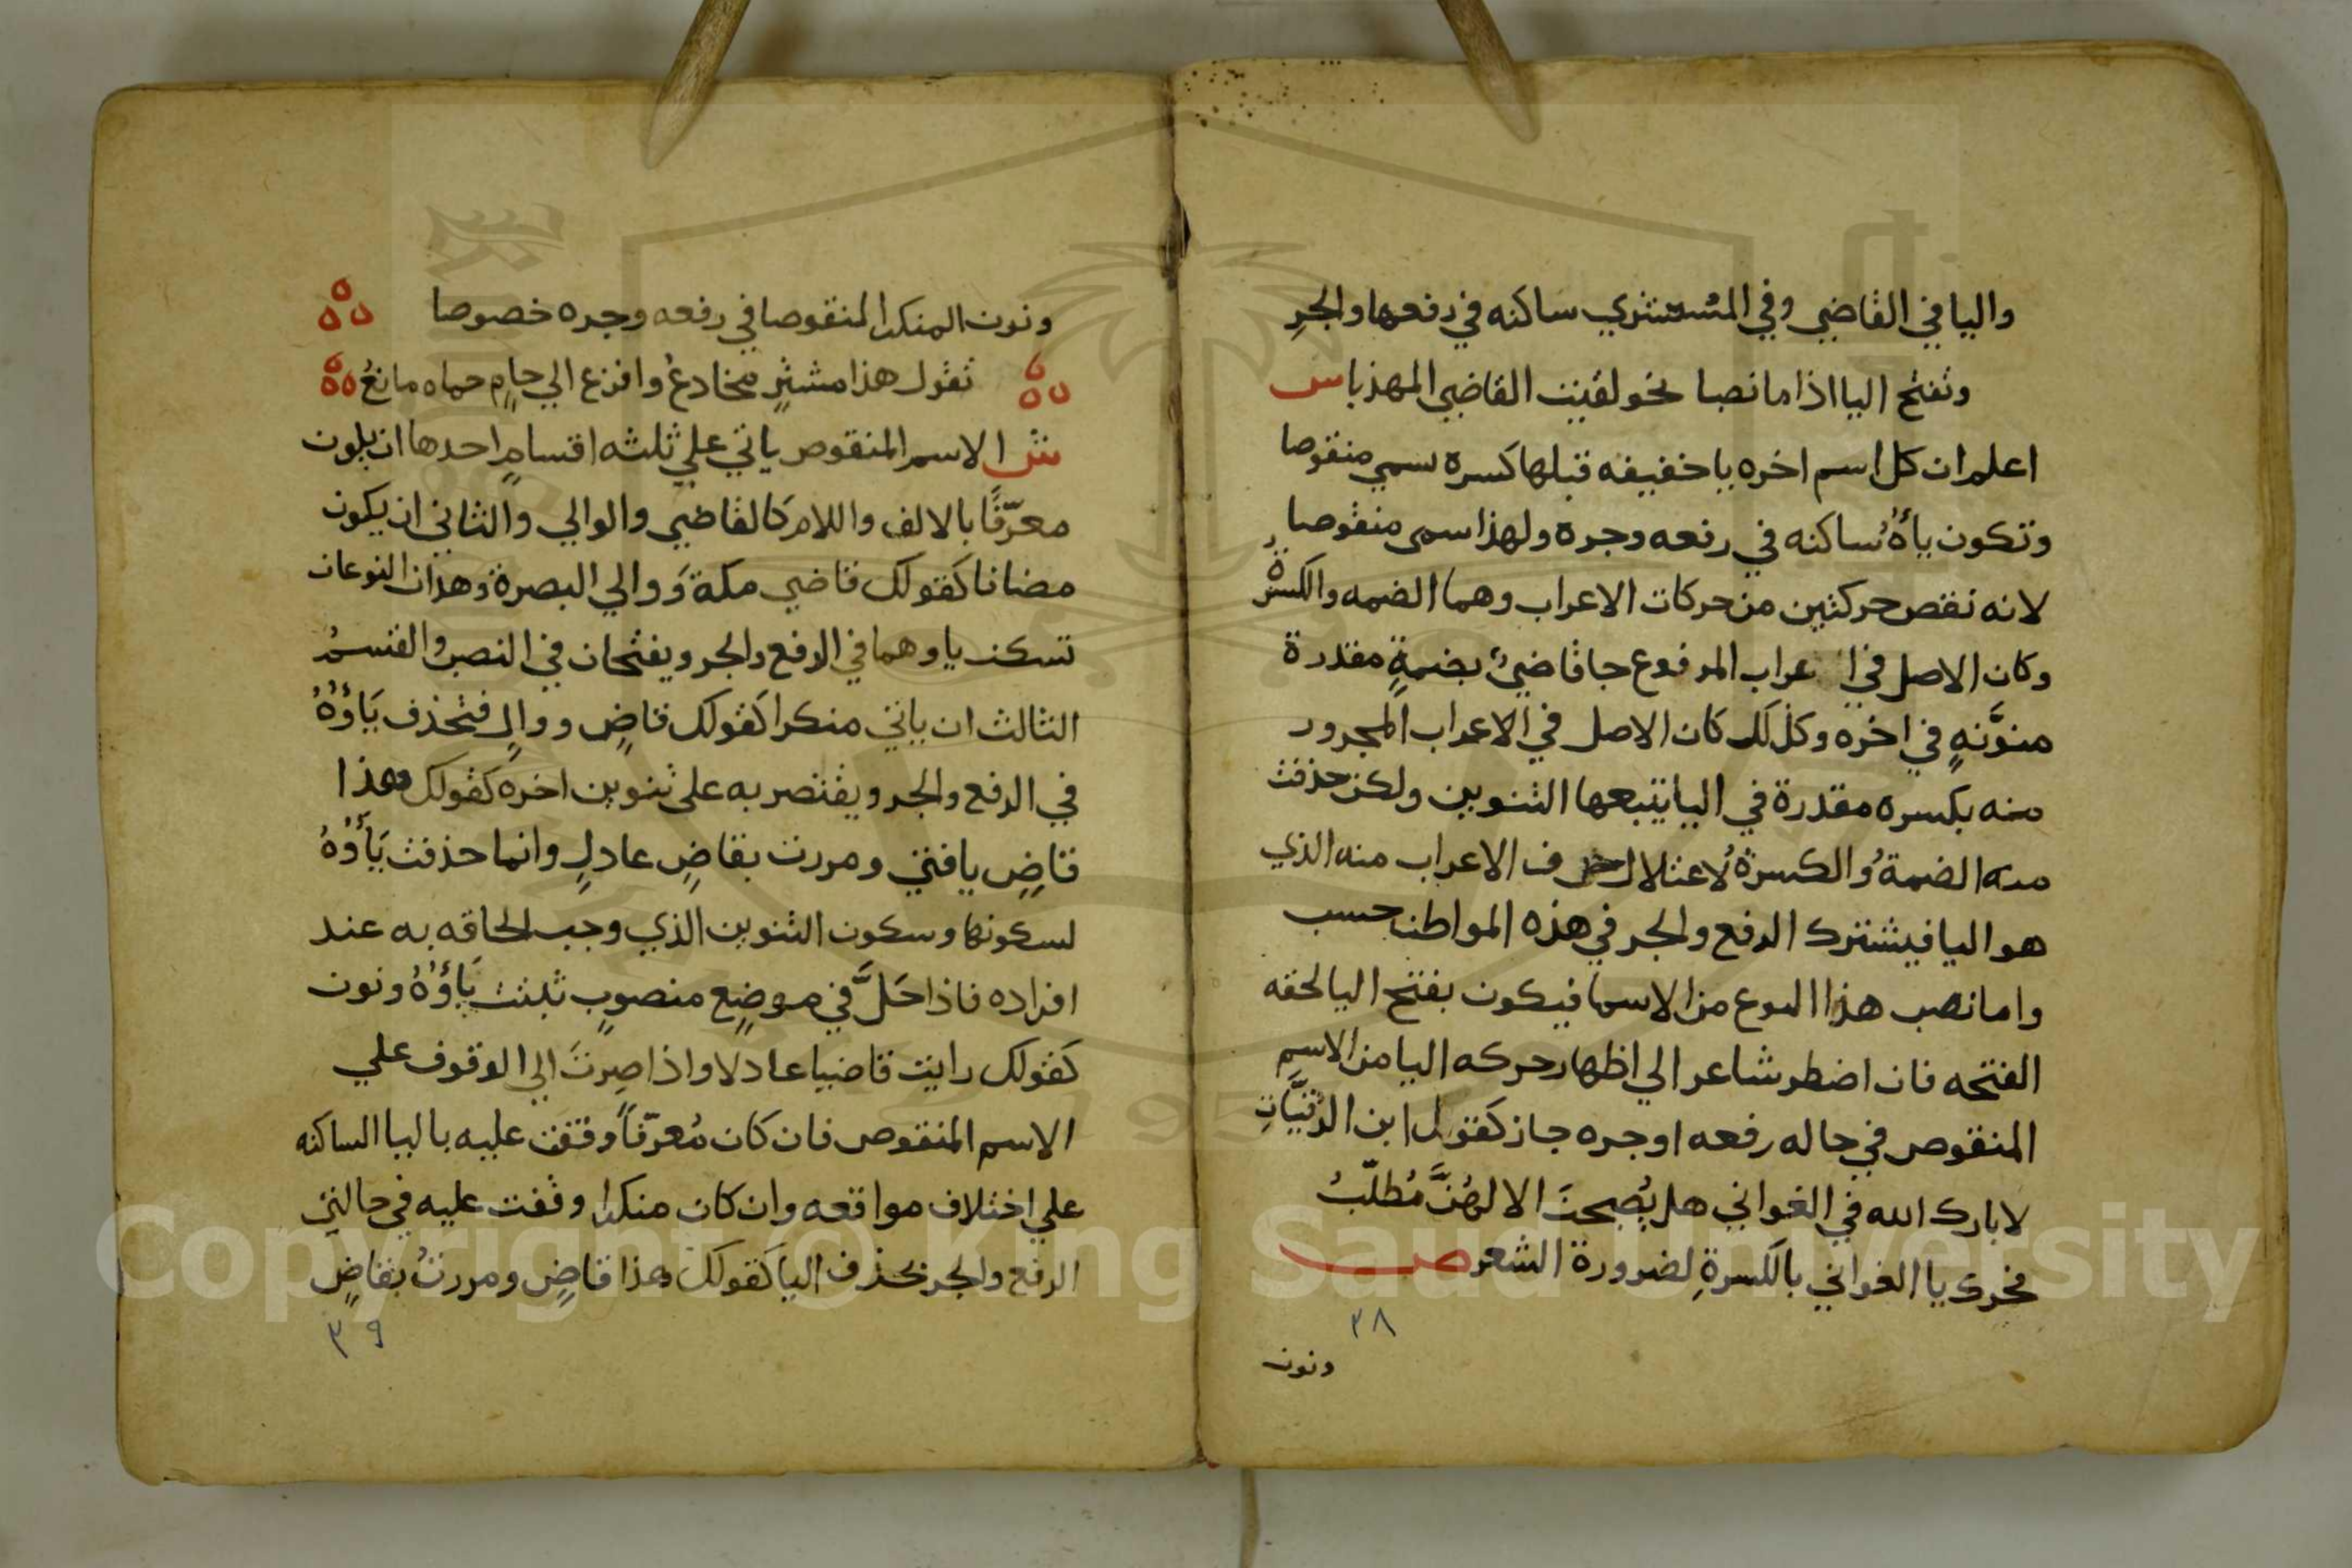 واليا في القاضي وفي المستشري ساكنه في رفعها والجرِ
وتفتح اليا اذا ما نصبا نحو لقيت القاضي المهذبا س
اعلم ان كل اسم اخره يا خفيفه قبلها كسرة سمي منقوصا
وتكون ياؤُهُ ساكنه في رفعه وجره ولهذا سمى منقوصا
لانه نقص حركتين من حركات الاعراب وهما الضمه والكسرة
وكان الاصل في ا عراب المرفوع جا قاضيٌ بضمةٍ مقدرة
منوَّنهٍ في اخره وكذلك كان الاصل في الاعراب المجرور
منه بكسره مقدرة في اليا يتبعها التنوين ولكن حذفت
منه الضمةُ والكسرةُ لاعتلال حرف الاعراب منه الذي
هو اليا فيشترك الرفع والجر في هذه المواطن حسب
واما نصب هذا النوع من الاسما فيكون بفتح اليا لخفه
الفتحه فان اضطر شاعر الي اظهار حركه اليا من الاسمِ
المنقوص في حاله رفعه او جره جاز كقول ابن الرُقيَّاتِ
لا بارك الله في الغواني هل يُصبحنَ الا لهُنَّ مُطلّبُ
فحرك يا الغواني بالكسرةِ لضرورة الشعر ص
٣٨
ونون
ونون المنكر المنقوصا في رفعه وجره خصوصا
تقول هذا مشترٍ مخادعُ وافزع الي حامٍ حماه مانعُ
ش الاسم المنقوص ياتي علي ثلثه اقسامٍ احدها ان يكون
معرّفًا بالالف واللام كالقاضي والوالي والثاني ان يكون
مضافا كقولك قاضي مكةَ ووالي البصرة وهذان النوعان
تسكن ياوهما في الرفع والجر ويفتحان في النصب والقسمُ
الثالث ان ياتي منكرا كقولك قاضٍ ووالٍ فتحذف يَاؤُهُ
في الرفع والجر ويقتصر به على تنوين اخره كقولك هذا
قاضٍ يا فتي ومررت بقاضٍ عادلٍ وانما حذفت يَاؤُهُ
لسكونها وسكون التنوين الذي وجب الحاقه به عند
افراده فاذا حَلَّ في موضعٍ منصوبٍ ثبتت يَاؤُهُ ونون
كقولك رايت قاضيا عادلا واذا صِرتَ الي الوقوف علي
الاسم المنقوص فان كان مُعرّفاً وقفت عليه باليا الساكنه
علي اختلاف مواقعه وان كان منكرا وقفت عليه في حالتي
الرفع والجر بحذف اليا كقولك هذا قاضٍ ومررتُ بقاضٍ
٣٩
Copyright © King Saud University